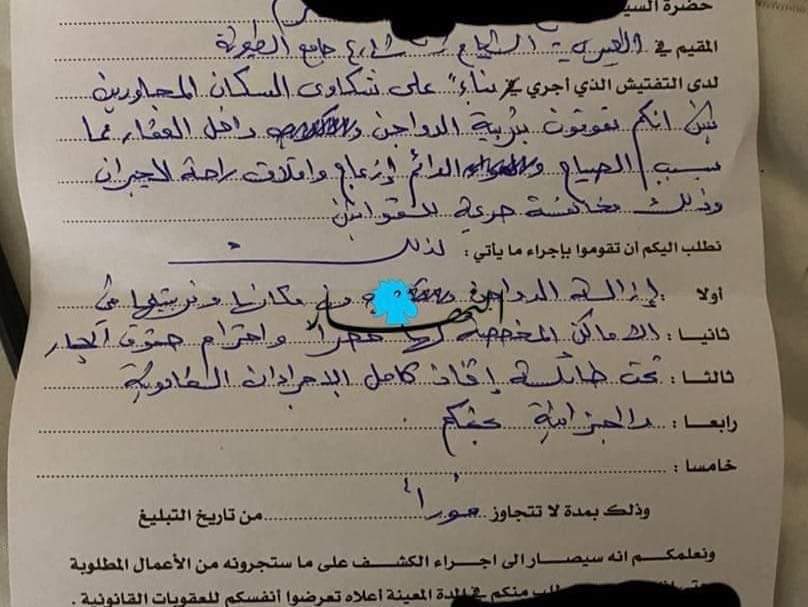 حضرة السيد
المقيم في العمرية - الشياح شارع جامع الطيونة
لدى التفتيش الذي أجري في بناءً على شكاوى السكان المجاورين
انكم تقومون بتربية الدواجن داخل العقار مما
يسبب الصياح الدائم إزعاج واقلاق راحة الجيران
وذلك مخالفة صريحة للقوانين
نطلب اليكم أن تقوموا بإجراء ما يأتي : لذلك
أولا : إزالة الدواجن من مكانها وتربيتها في
ثانيا : الاماكن المخصصة لها حصراً واحترام حقوق الجار
ثالثا : تحت طائلة إتخاذ كامل الإجراءات القانونية
رابعا : والجزائية بحقكم
خامسا :
وذلك بمدة لا تتجاوز فوراً من تاريخ التبليغ
ونعلمكم انه سيصار الى اجراء الكشف على ما ستجرونه من الأعمال المطلوبة
منكم في المدة المعينة أعلاه تعرضوا أنفسكم للعقوبات القانونية .